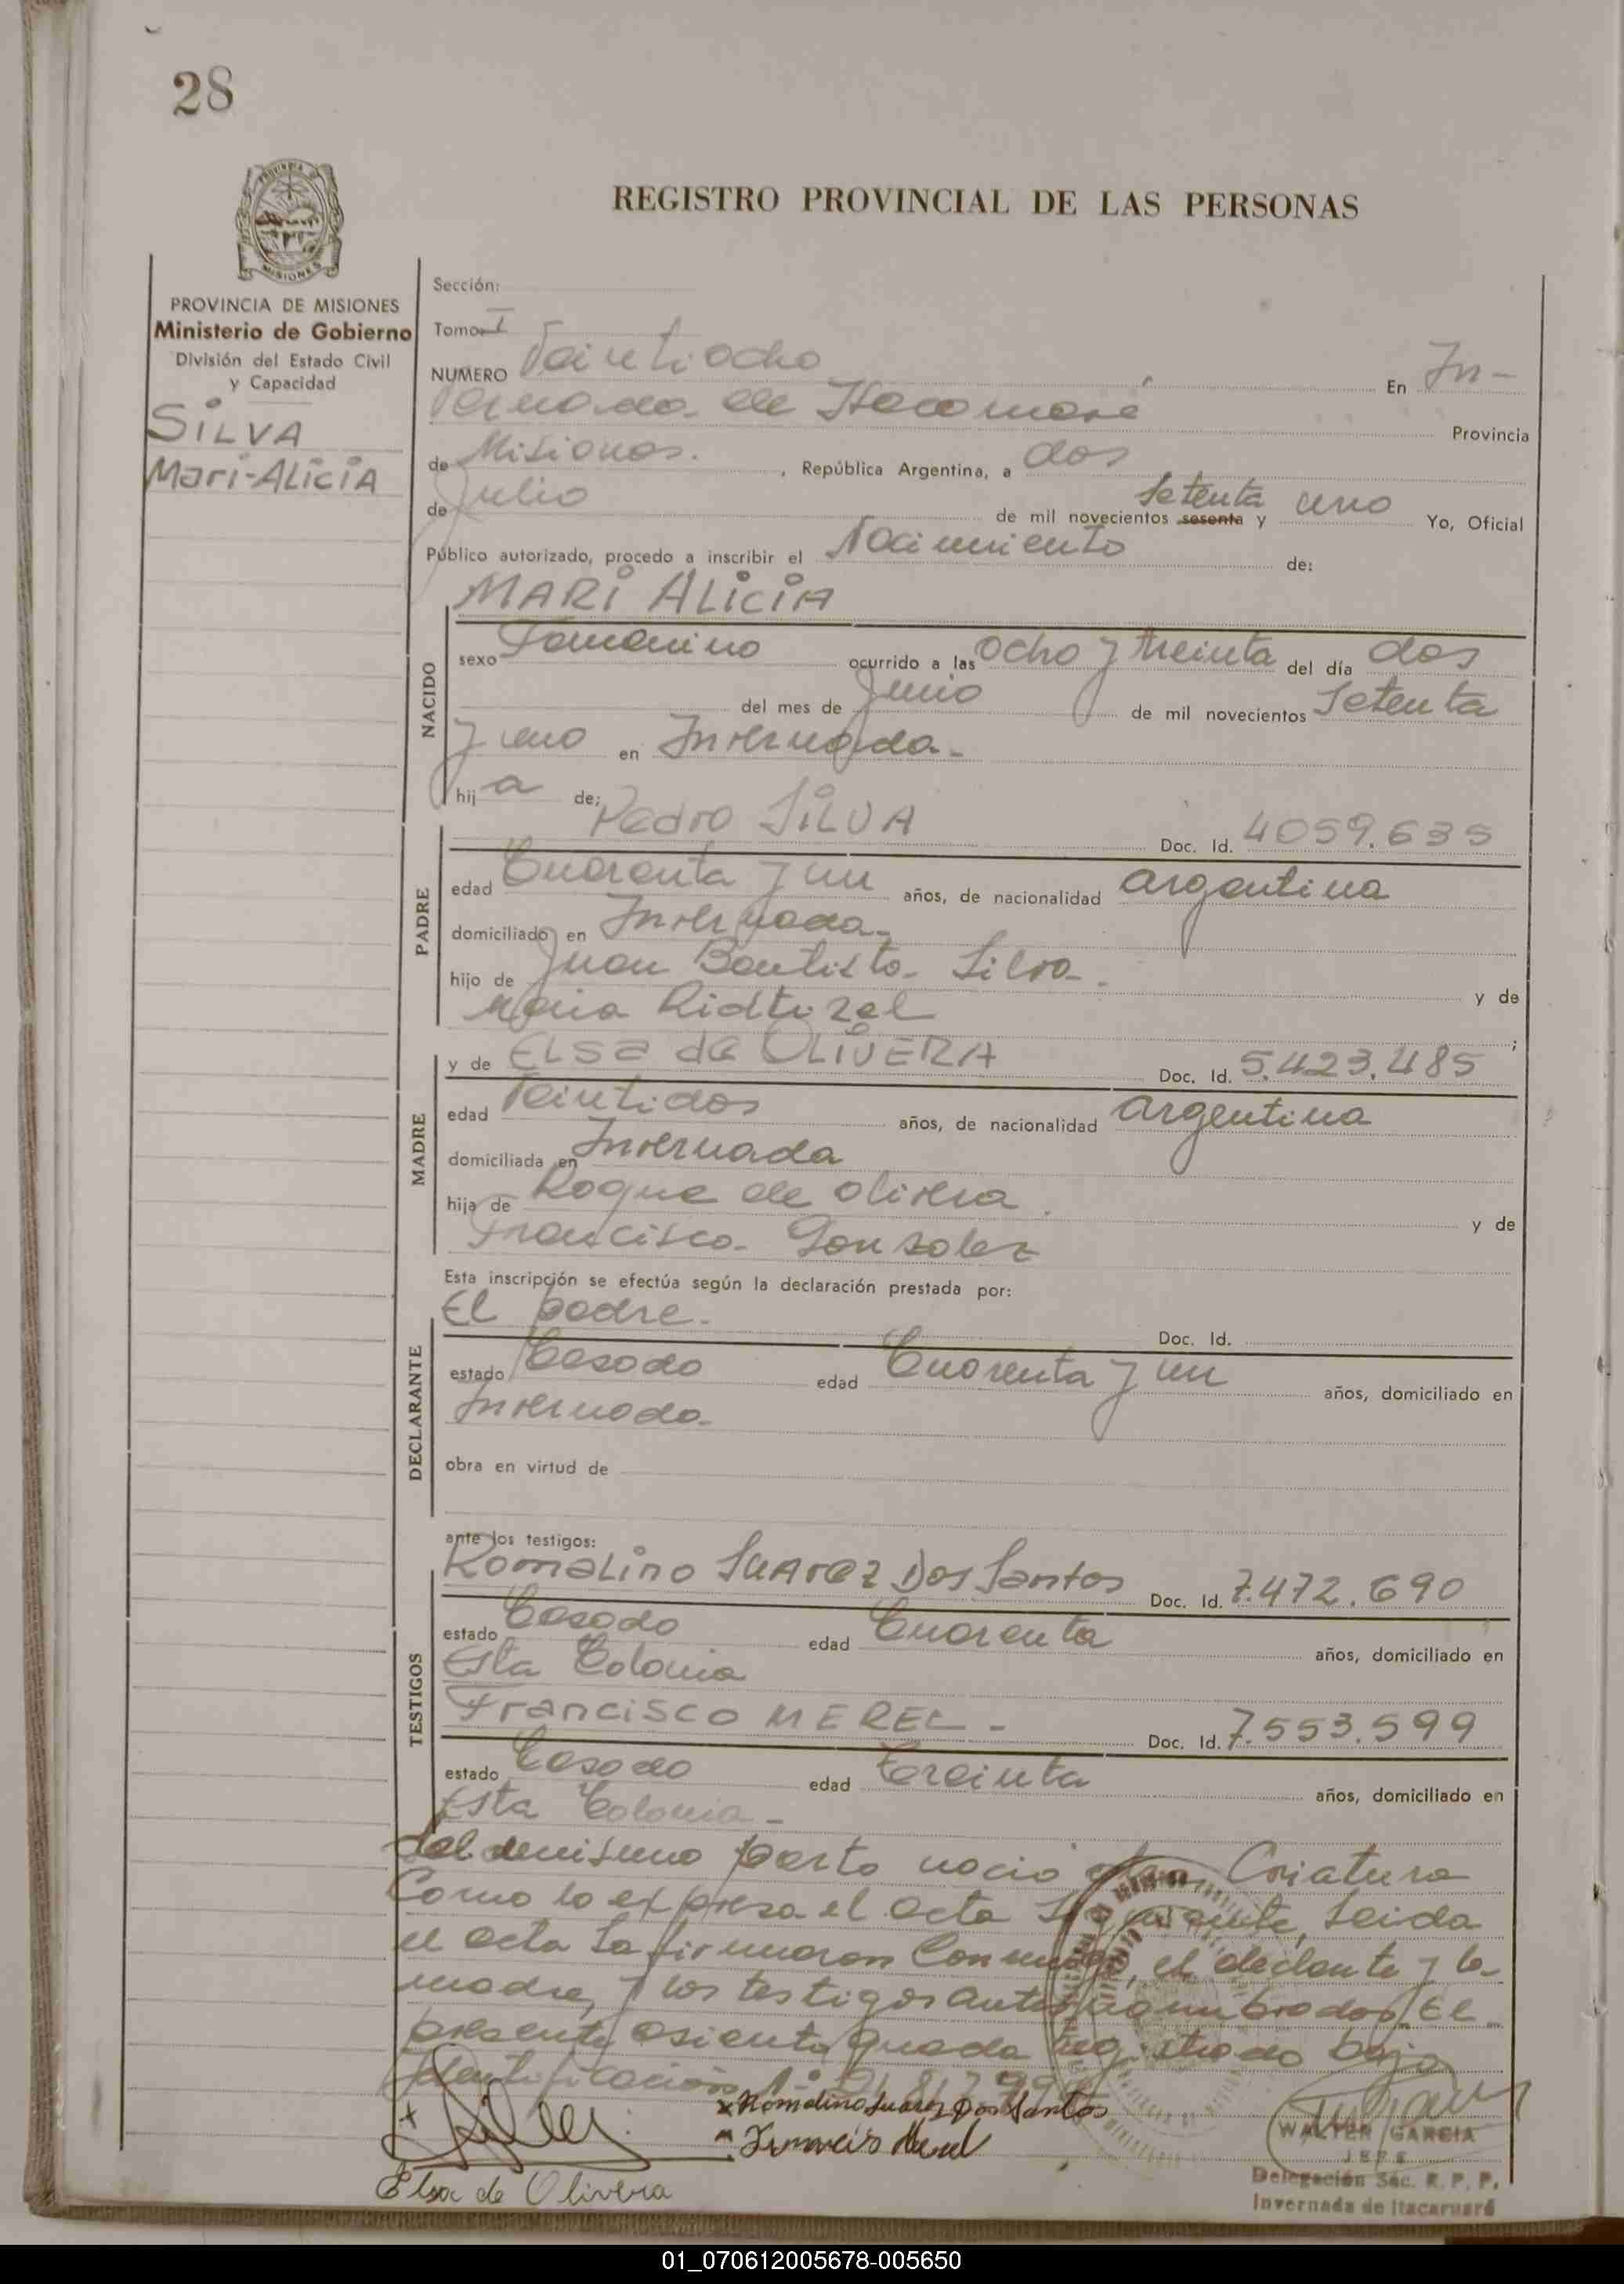 28
PROVINCIA DE
MISIONES
REGISTRO PROVINCIAL DE LAS PERSONAS
PROVINCIA DE MISIONES
Ministerio de Gobierno
División del Estado Civil
y Capacidad
SILVA
Mari-ALiciA
Sección:
Tomo I
NUMERO Veintiocho En In-
vernada de Itacaruaré Provincia
de Misiones. , República Argentina, a dos
de Julio de mil novecientos sesenta setenta y uno Yo, Oficial
Público autorizado, procedo a inscribir el Nacimiento de:
NACIDO
MARI ALICIA
sexo Femenino ocurrido a las ocho y treinta del día dos
del mes de Junio de mil novecientos Setenta
y uno en Invernada-
hija de: Pedro SILVA Doc. Id. 4059.635
PADRE
edad Cuarenta y un años, de nacionalidad argentina
domiciliado en Invernada-
hijo de Juan Bautista Silva y de
Maria
MADRE
y de ELSa de OLIVERA Doc. Id. 5.423.485
edad Veintidos años, de nacionalidad argentina
domiciliada en Invernada
hija de Roque de olivera y de
Francisca Gonsalez
Esta inscripción se efectúa según la declaración prestada por:
DECLARANTE
El padre. Doc. Id.
estado Casado edad Cuarenta y un años, domiciliado en
Invernada
obra en virtud de
ante los testigos:
TESTIGOS
Romalino Suarez Dos Santos Doc. Id. 7.472.690
estado Casado edad Cuarenta años, domiciliado en
Esta Colonia
Francisco MEREL - Doc. Id. 7.553.599
estado Casado edad treinta años, domiciliado en
Esta Colonia -
del mismo parto nació Criatura
Como lo expresa el acta Siguiente, Leida
el acta La firmaron Conmigo, el declante y la
madre, y los testigos antes nombrados. El
presente asiento queda registrado bajo
Identificación Nº
x Romalino Suarez Dos Santos
Merel
Elsa de Olivera
WALTER GARCIA
JEFE
Delegación Sec. R. P. P.
Invernada de Itacaruaré
01_070612005678-005650